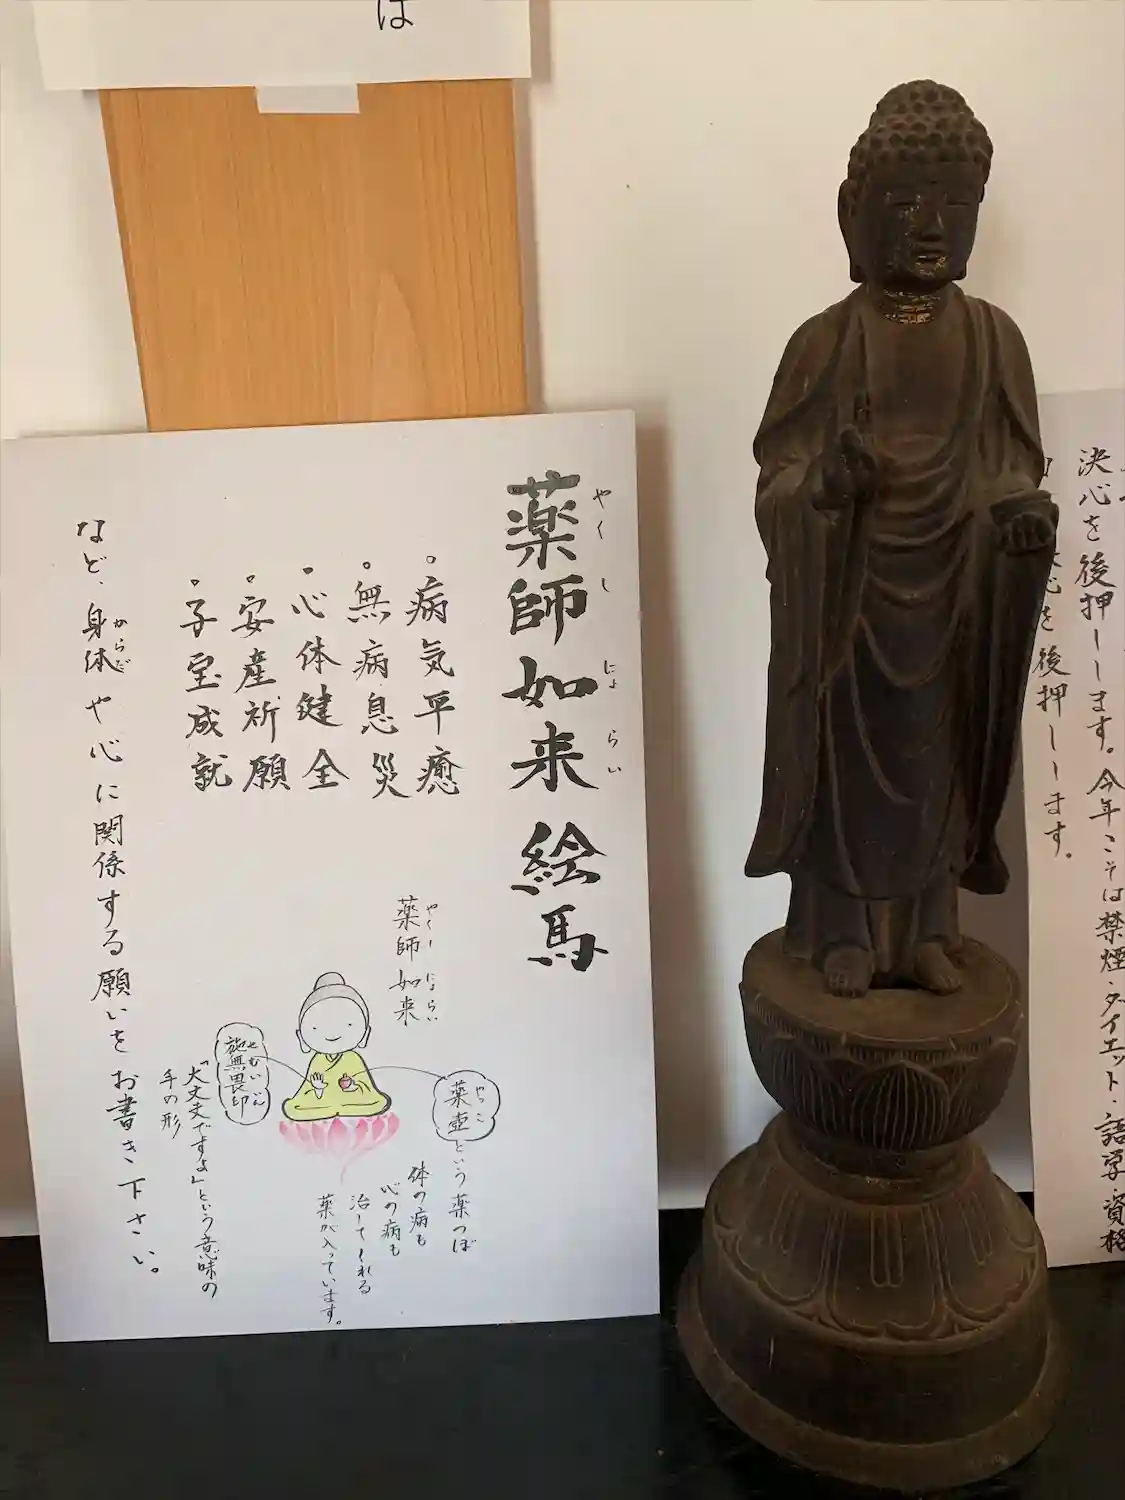 は
薬師如来絵馬
やくしにょらい
。病気平癒
。無病息災
。心体健全
。安産祈願
。子宝成就
など、身体や心に関係する願いをお書き下さい。
からだ
薬師如来
やくしにょらい
薬壺という薬つぼ
やっこ
体の病も
心の病も
治してくれる
薬が入っています。
施無畏印
せむいいん
「大丈夫ですよ」という意味の
手の形
決心を後押しします。今年こそは禁煙・ダイエット・語学・資格
心を後押しします。